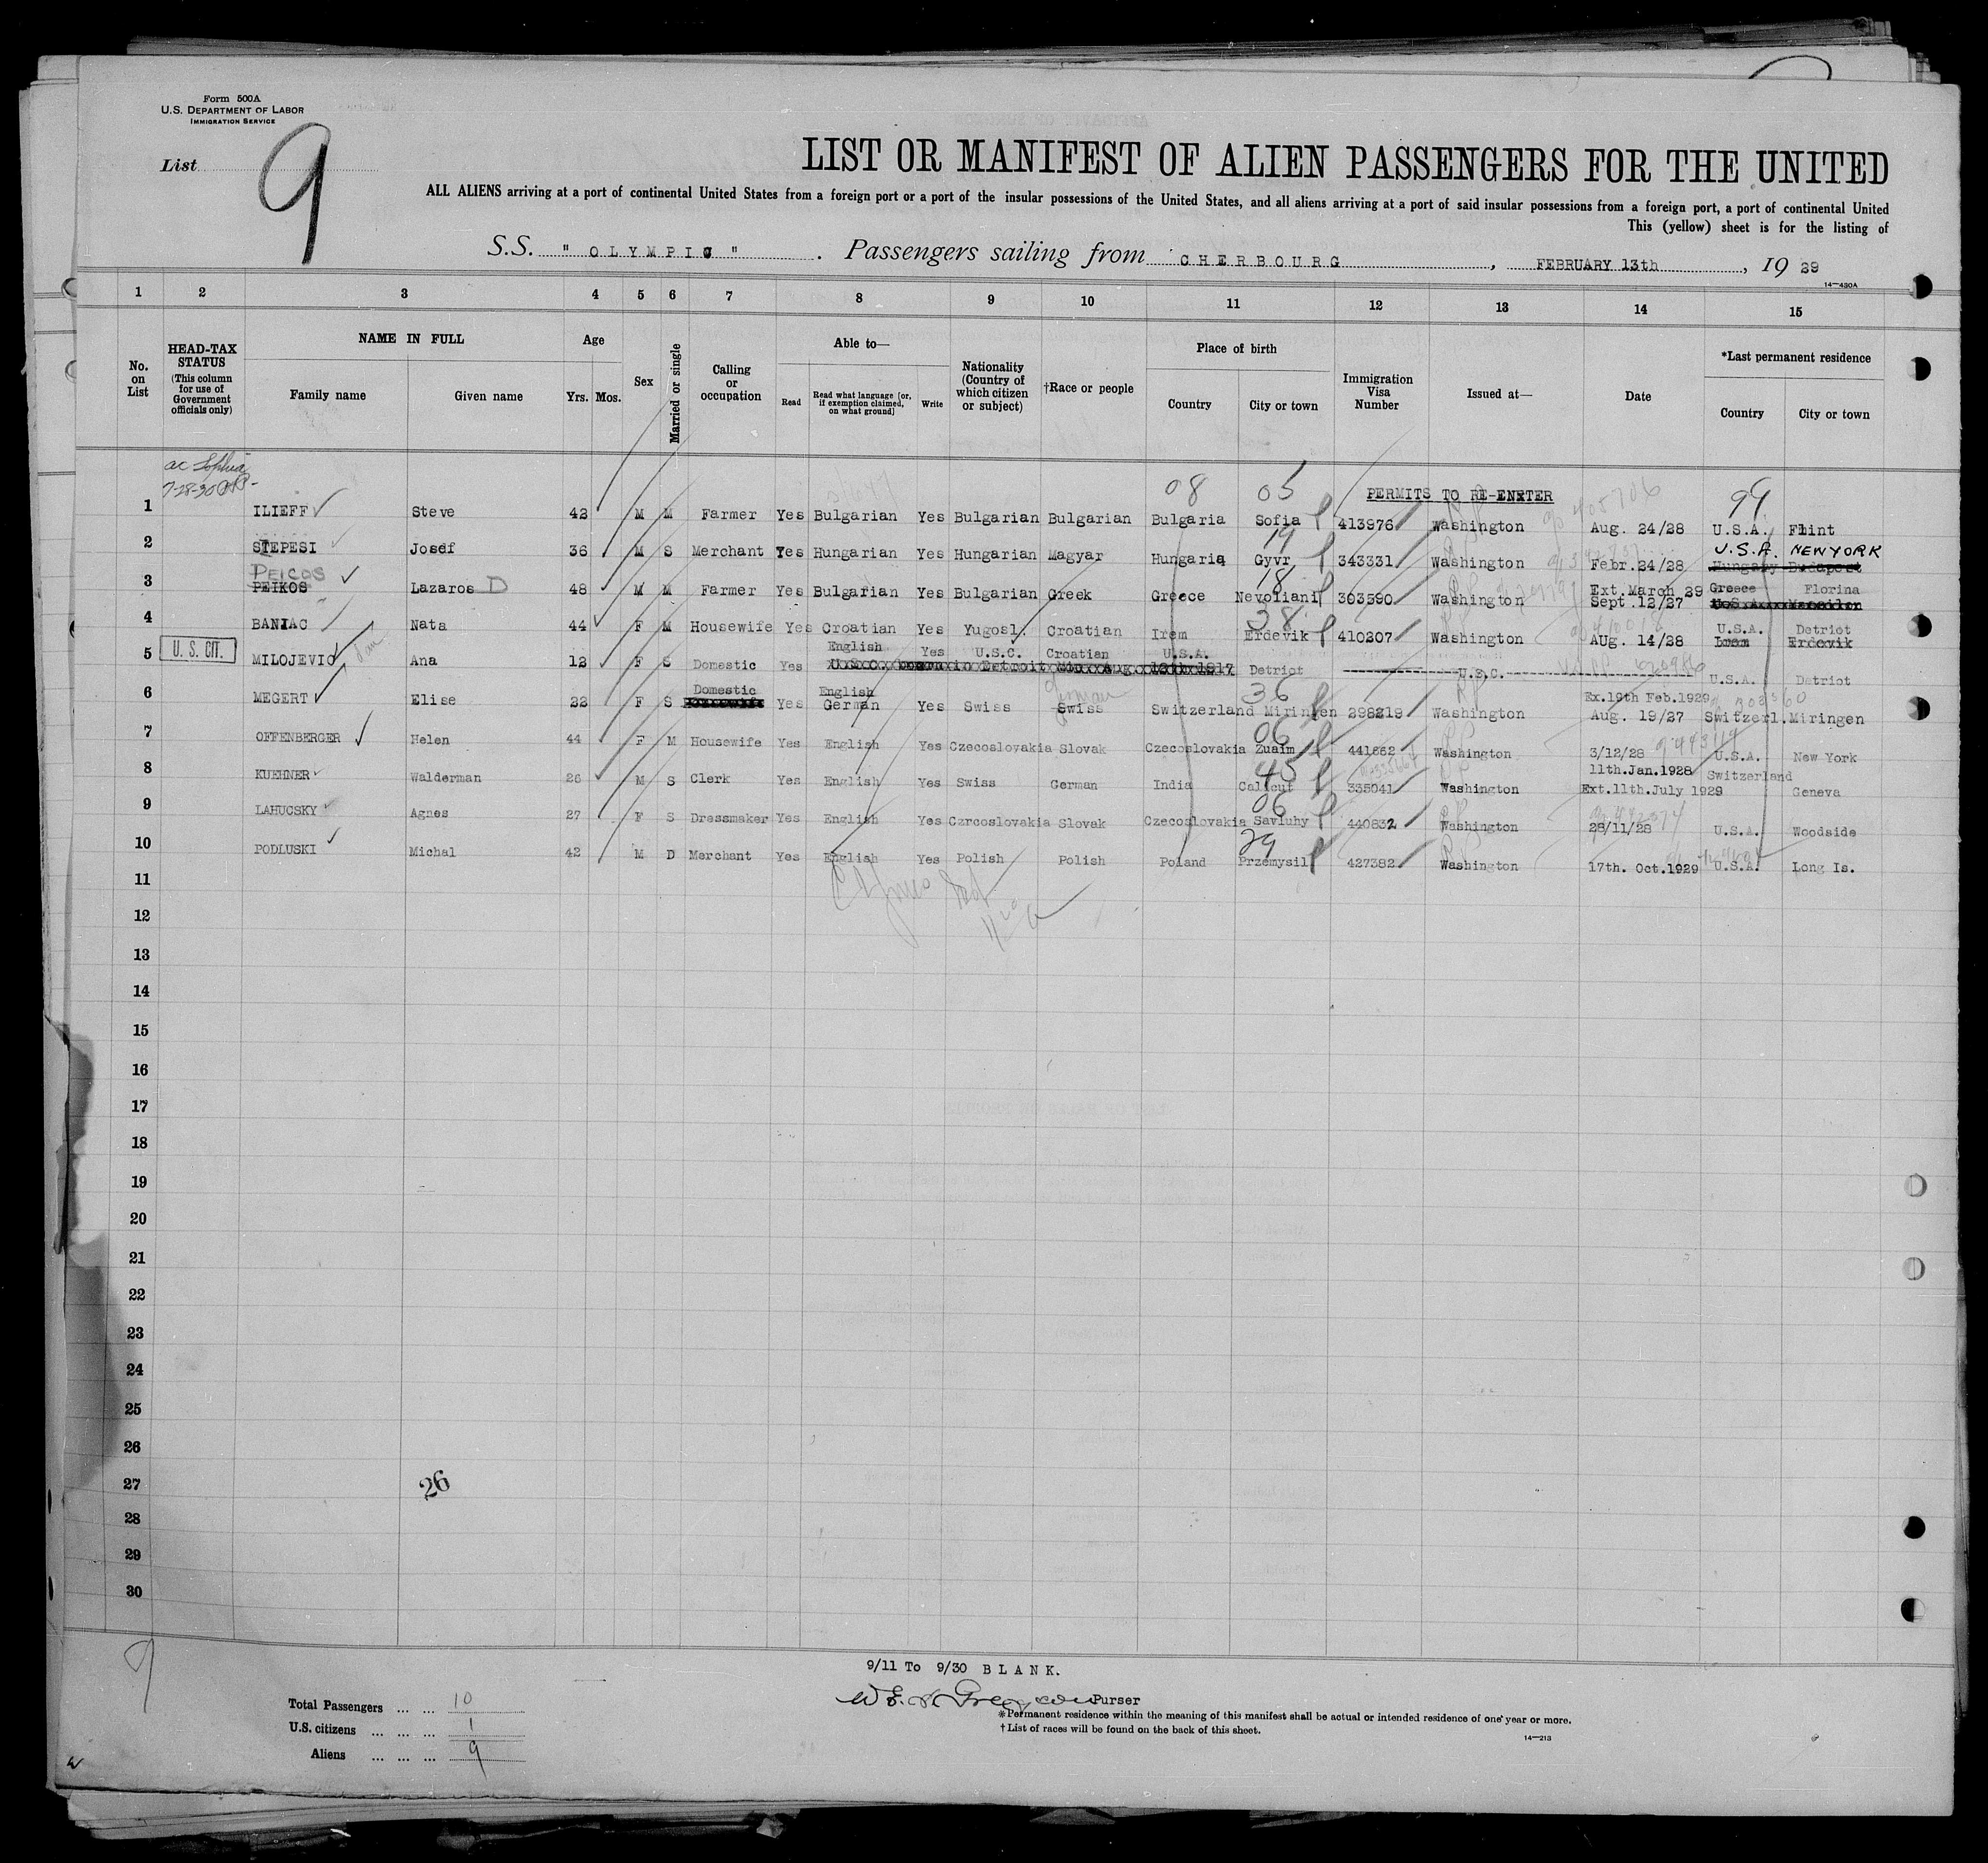 Form 500A
U.S. DEPARTMENT OF LABOR
IMMIGRATION SERVICE
List 9
LIST OR MANIFEST OF ALIEN PASSENGERS FOR THE UNITED
ALL ALIENS arriving at a port of continental United States from a foreign port or a port of the insular possessions of the United States, and all aliens arriving at a port of said insular possessions from a foreign port, a port of continental United
This (yellow) sheet is for the listing of
S.S. "OLYMPIC". Passengers sailing from CHERBOURG, FEBRUARY 13th, 19 29
14—430A
1 2 3 4 5 6 7 8 9 10 11 12 13 14 15
No. on List
HEAD-TAX STATUS (This column for use of Government officials only)
NAME IN FULL
Family name Given name
Age
Yrs. Mos.
Sex
Married or single
Calling or occupation
Able to—
Read Read what language [or, if exemption claimed, on what ground] Write
Nationality (Country of which citizen or subject)
†Race or people
Place of birth
Country City or town
Immigration Visa Number
Issued at—
Date
*Last permanent residence
Country City or town
7-28-30
08 05 PERMITS TO RE-ENTER 99
1 ILIEFF Steve 42 M M Farmer Yes Bulgarian Yes Bulgarian Bulgarian Bulgaria Sofia 413976 Washington Aug. 24/28 U.S.A. Flint
19 U.S.A. NEW YORK
2 STEPESI Josef 36 M S Merchant Yes Hungarian Yes Hungarian Magyar Hungaria Gyvr 343331 Washington Febr.24/28 Hungary Budapest
PEICOS 18 Ext.March 29 Greece Florina
3 PEIKOS Lazaros D 48 M M Farmer Yes Bulgarian Yes Bulgarian Greek Greece Nevoliani 303590 Washington Sept.12/27
38 U.S.A. Detriot
4 BANIAC Nata 44 F M Housewife Yes Croatian Yes Yugosl. Croatian Irem Erdevik 410207 Washington AUG. 14/28 Erdevik
U. S. CIT.
English Yes U.S.C. Croatian U.S.A.
5 MILOJEVIC Ana 12 F S Domestic Yes Detriot U.S.C. U.S.A. Detriot
Domestic English German 36 Ex.19th Feb.1929
6 MEGERT Elise 22 F S Yes German Yes Swiss Swiss Switzerland Miringen 298219 Washington Aug. 19/27 Switzerl. Miringen
06
7 OFFENBERGER Helen 44 F M Housewife Yes English Yes Czecoslovakia Slovak Czecoslovakia Zuaim 441662 Washington 3/12/28 U.S.A. New York
45 11th.Jan.1928 Switzerland
8 KUEHNER Walderman 26 M S Clerk Yes English Yes Swiss German India Calicut 335041 Washington Ext.11th.July 1929 Geneva
06
9 LAHUCSKY Agnes 27 F S Dressmaker Yes English Yes Czrcoslovakia Slovak Czecoslovakia Savluhy 440832 Washington 28/11/28 U.S.A. Woodside
29
10 PODLUSKI Michal 42 M D Merchant Yes English Yes Polish Polish Poland Przemysil 427382 Washington 17th. Oct.1929 U.S.A. Long Is.
11
12
13
14
15
16
17
18
19
20
21
22
23
24
25
26
27 26
28
29
30
9
9/11 To 9/30 BLANK.
Purser
Total Passengers ... ... 10
U.S. citizens ... ... ... 1
Aliens ... ... ... 9
*Permanent residence within the meaning of this manifest shall be actual or intended residence of one year or more.
†List of races will be found on the back of this sheet.
14—213